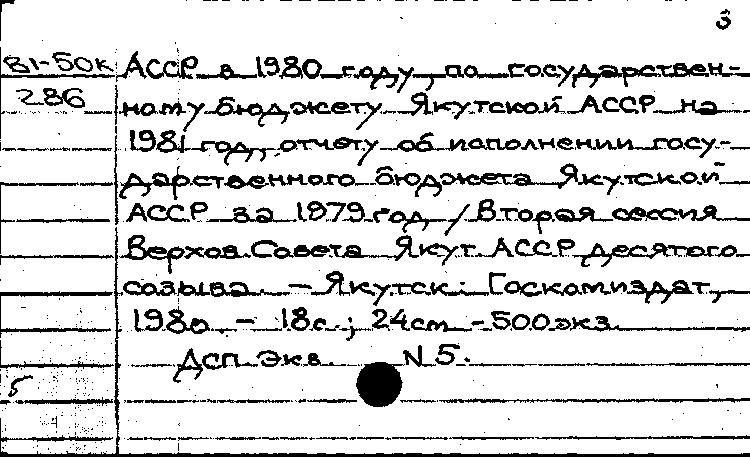 3
81-50к АССР в 1980 году, по государствен-
286 ному бюджету Якутской АССР на
1981 год, отчету об исполнении госу-
дарственного бюджета Якутской
АССР за 1979 год / Вторая сессия
Верхов. Совета Якут. АССР десятого
созыва. – Якутск: Госкомиздат,
1980. – 18с.; 24см – 500экз.
Дсп. Экз. N 5.
5